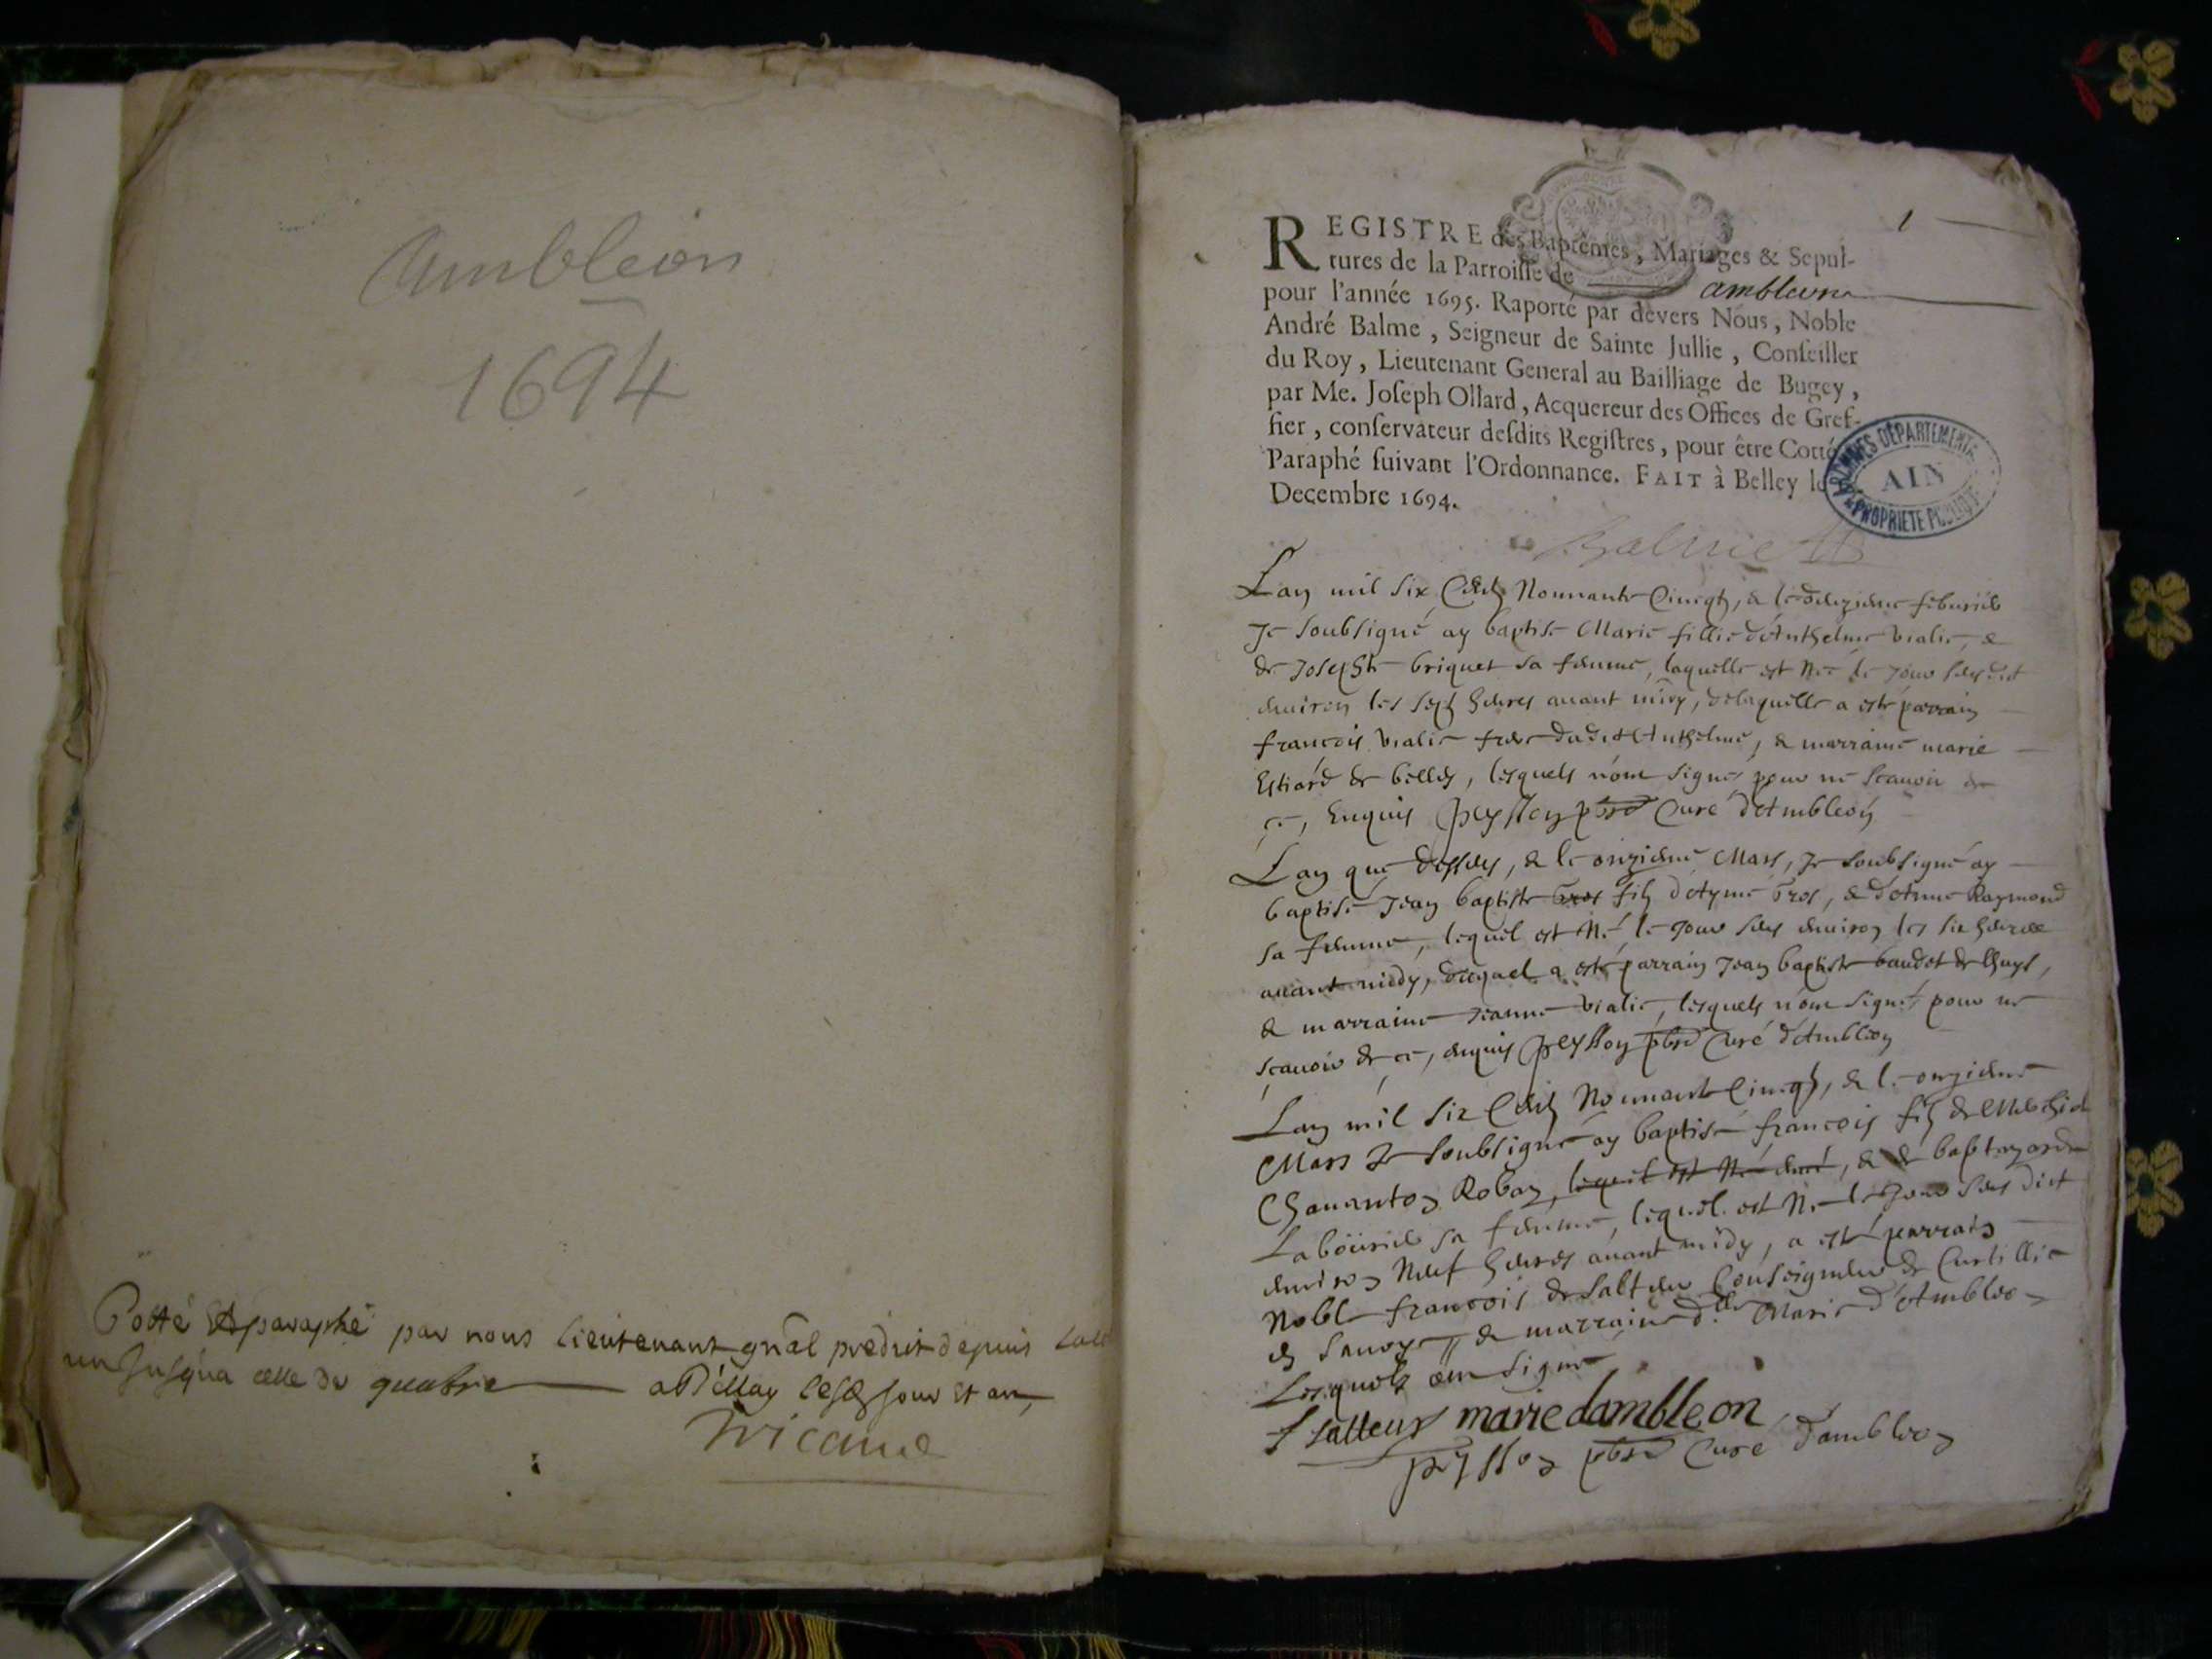 Ambleon
1694
Cotté Et paraphé par nous lieutenant gnãl predit depuis
un jusqua celle de quatre jour et an,
1
REGISTRE des Baptêmes, Mariages & Sepul-
tures de la Parroisse de ambleon
pour l'année 1695. Raporté par devers Nous, Noble
André Balme, Seigneur de Sainte Jullie, Conseiller
du Roy, Lieutenant General au Bailliage de Bugey,
par Me. Joseph Ollard, Acquereur des Offices de Gref-
fier, conservateur desdits Registres, pour être Cotté
Paraphé suivant l'Ordonnance. FAIT à Belley le
Decembre 1694.
ARCHIVES DÉPARTEMENTALES
AIN
PROPRIÉTÉ PUBLIQUE
Balme
Lan mil six Cents Nonnante Cincq, & le febvrier
Je soubsigné ay baptisé Marie fillie d'Anthelme vialie, &
de Josephte briquet sa femme, laquelle est Née le jour susdict
environ les sept heures avant midy, delaquelle a esté parrain
francois vialie frere dudict Anthelme, & marraine marie
de belley, lesquels n'ont signés pour ne scavoir de
ce, Enquis peysson pbre Curé d'Ambleon
Lan que dessus, & le onzieme Mars, Je soubsigné ay
baptisé Jean baptiste gros filz d'Aymé gros, & d'Anne Raymond
sa femme, lequel est Né le jour sus environ les six heures
avant midy, duquel a esté parrain Jean baptiste baudet de lhuys,
& marraine Jeanne vialie, lesquels n'ont signés pour ne
scavoir de ce, enquis peysson pbre Curé d'Ambleon
Lan mil six Cents Nonnante Cincq, & le onzieme
Mars Je soubsigné ay baptisé francois filz de Melchiol
Chananton Roban, lequel est Né, & de
sa femme, lequel est Né le jour sus dict
environ Neuf heures avant midy, a esté parrain
Noble francois de salteur Conseigneur de
en savoye, & marraine dlle Marie d'Ambleon
Lesquels ont signé
f salteur marie dambleon
peysson pbre Curé dambleon